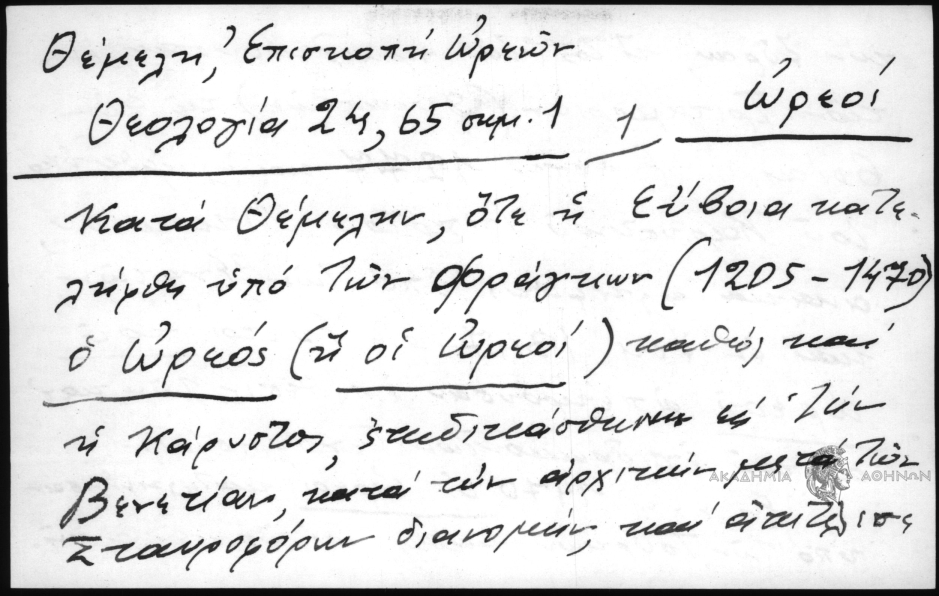 Θέμελη, Ἐπισκοπή Ὠρεῶν
Θεολογία 24, 65 σημ. 1 / 1 Ὠρεοί
Κατά Θέμελην, ὅτε ἡ Εὔβοια κατε-
λήφθη ὑπό τῶν Φράγκων (1205-1470)
ὁ Ὠρεός (ἤ οἱ Ὠρεοί) καθώς καί
ἡ Κάρυστος, ἐπεδικάσθησαν εἰς τήν
Βενετίαν, κατά τήν ἀρχικήν μετά τῶν
Σταυροφόρων διανομήν, καί
ΑΚΑΔΗΜΙΑ ΑΘΗΝΩΝ